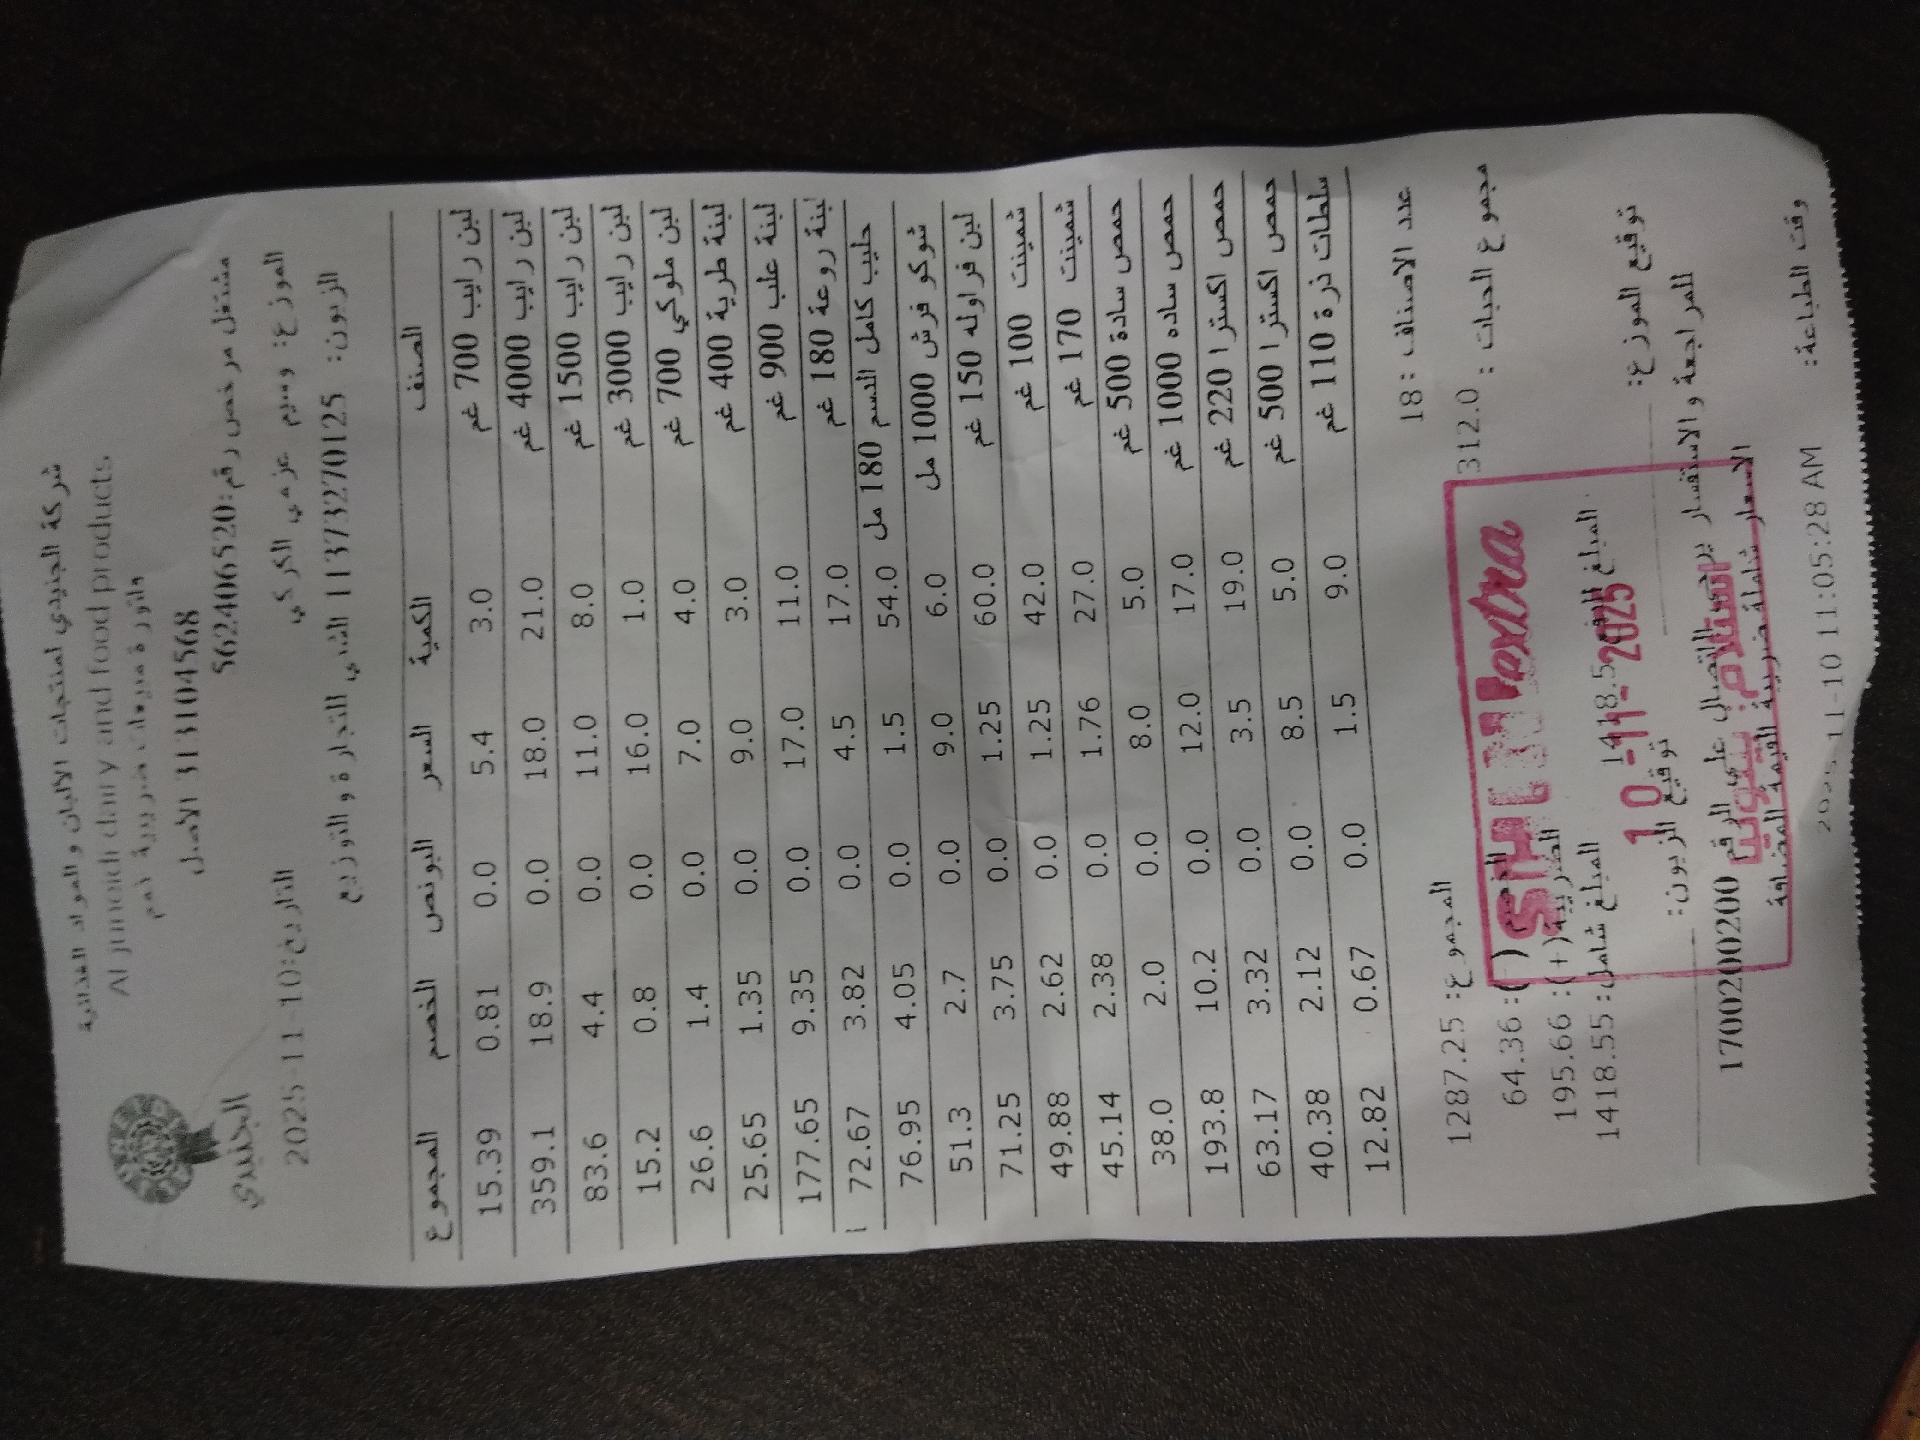 شركة الجنيدي لمنتجات الالبان و المواد الغذائية
Al juneidi dairy and food products.
فاتورة مبيعات ضريبية ذمم
313104568 الاصل
مشتغل مرخص رقم:562406520
الجنيدي
الموزع: وسيم عزمي الكركي
التاريخ:2025-11-10
الزبون: 11373270125 الشني التجارة و التوزيع
الصنف الكمية السعر البونص الخصم المجموع
لبن رايب 700 غم 3.0 5.4 0.0 0.81 15.39
لبن رايب 4000 غم 21.0 18.0 0.0 18.9 359.1
لبن رايب 1500 غم 8.0 11.0 0.0 4.4 83.6
لبن رايب 3000 غم 1.0 16.0 0.0 0.8 15.2
لبن ملوكي 700 غم 4.0 7.0 0.0 1.4 26.6
لبنة طرية 400 غم 3.0 9.0 0.0 1.35 25.65
لبنة علب 900 غم 11.0 17.0 0.0 9.35 177.65
لبنة روعة 180 غم 17.0 4.5 0.0 3.82 72.67
حليب كامل الدسم 180 مل 54.0 1.5 0.0 4.05 76.95
شوكو فرش 1000 مل 6.0 9.0 0.0 2.7 51.3
لبن فراوله 150 غم 60.0 1.25 0.0 3.75 71.25
شمينت 100 غم 42.0 1.25 0.0 2.62 49.88
شمينت 170 غم 27.0 1.76 0.0 2.38 45.14
حمص سادة 500 غم 5.0 8.0 0.0 2.0 38.0
حمص ساده 1000 غم 17.0 12.0 0.0 10.2 193.8
حمص اكسترا 220 غم 19.0 3.5 0.0 3.32 63.17
حمص اكسترا 500 غم 5.0 8.5 0.0 2.12 40.38
سلطات ذرة 110 غم 9.0 1.5 0.0 0.67 12.82
عدد الاصناف : 18
المجموع: 1287.25
مجموع الحبات : 312.0
الخصم (-): 64.36
الضريبة(+): 195.66
المبلغ شامل: 1418.55
المبلغ 1418.5
extra
10-11-2025
توقيع الموزع:
توقيع الزبون:
للمراجعة والاستفسار يرجى الاتصال على الرقم 1700200200
الاسعار شاملة ضريبة القيمة المضافة
وقت الطباعة: 2025-11-10 11:05:28 AM